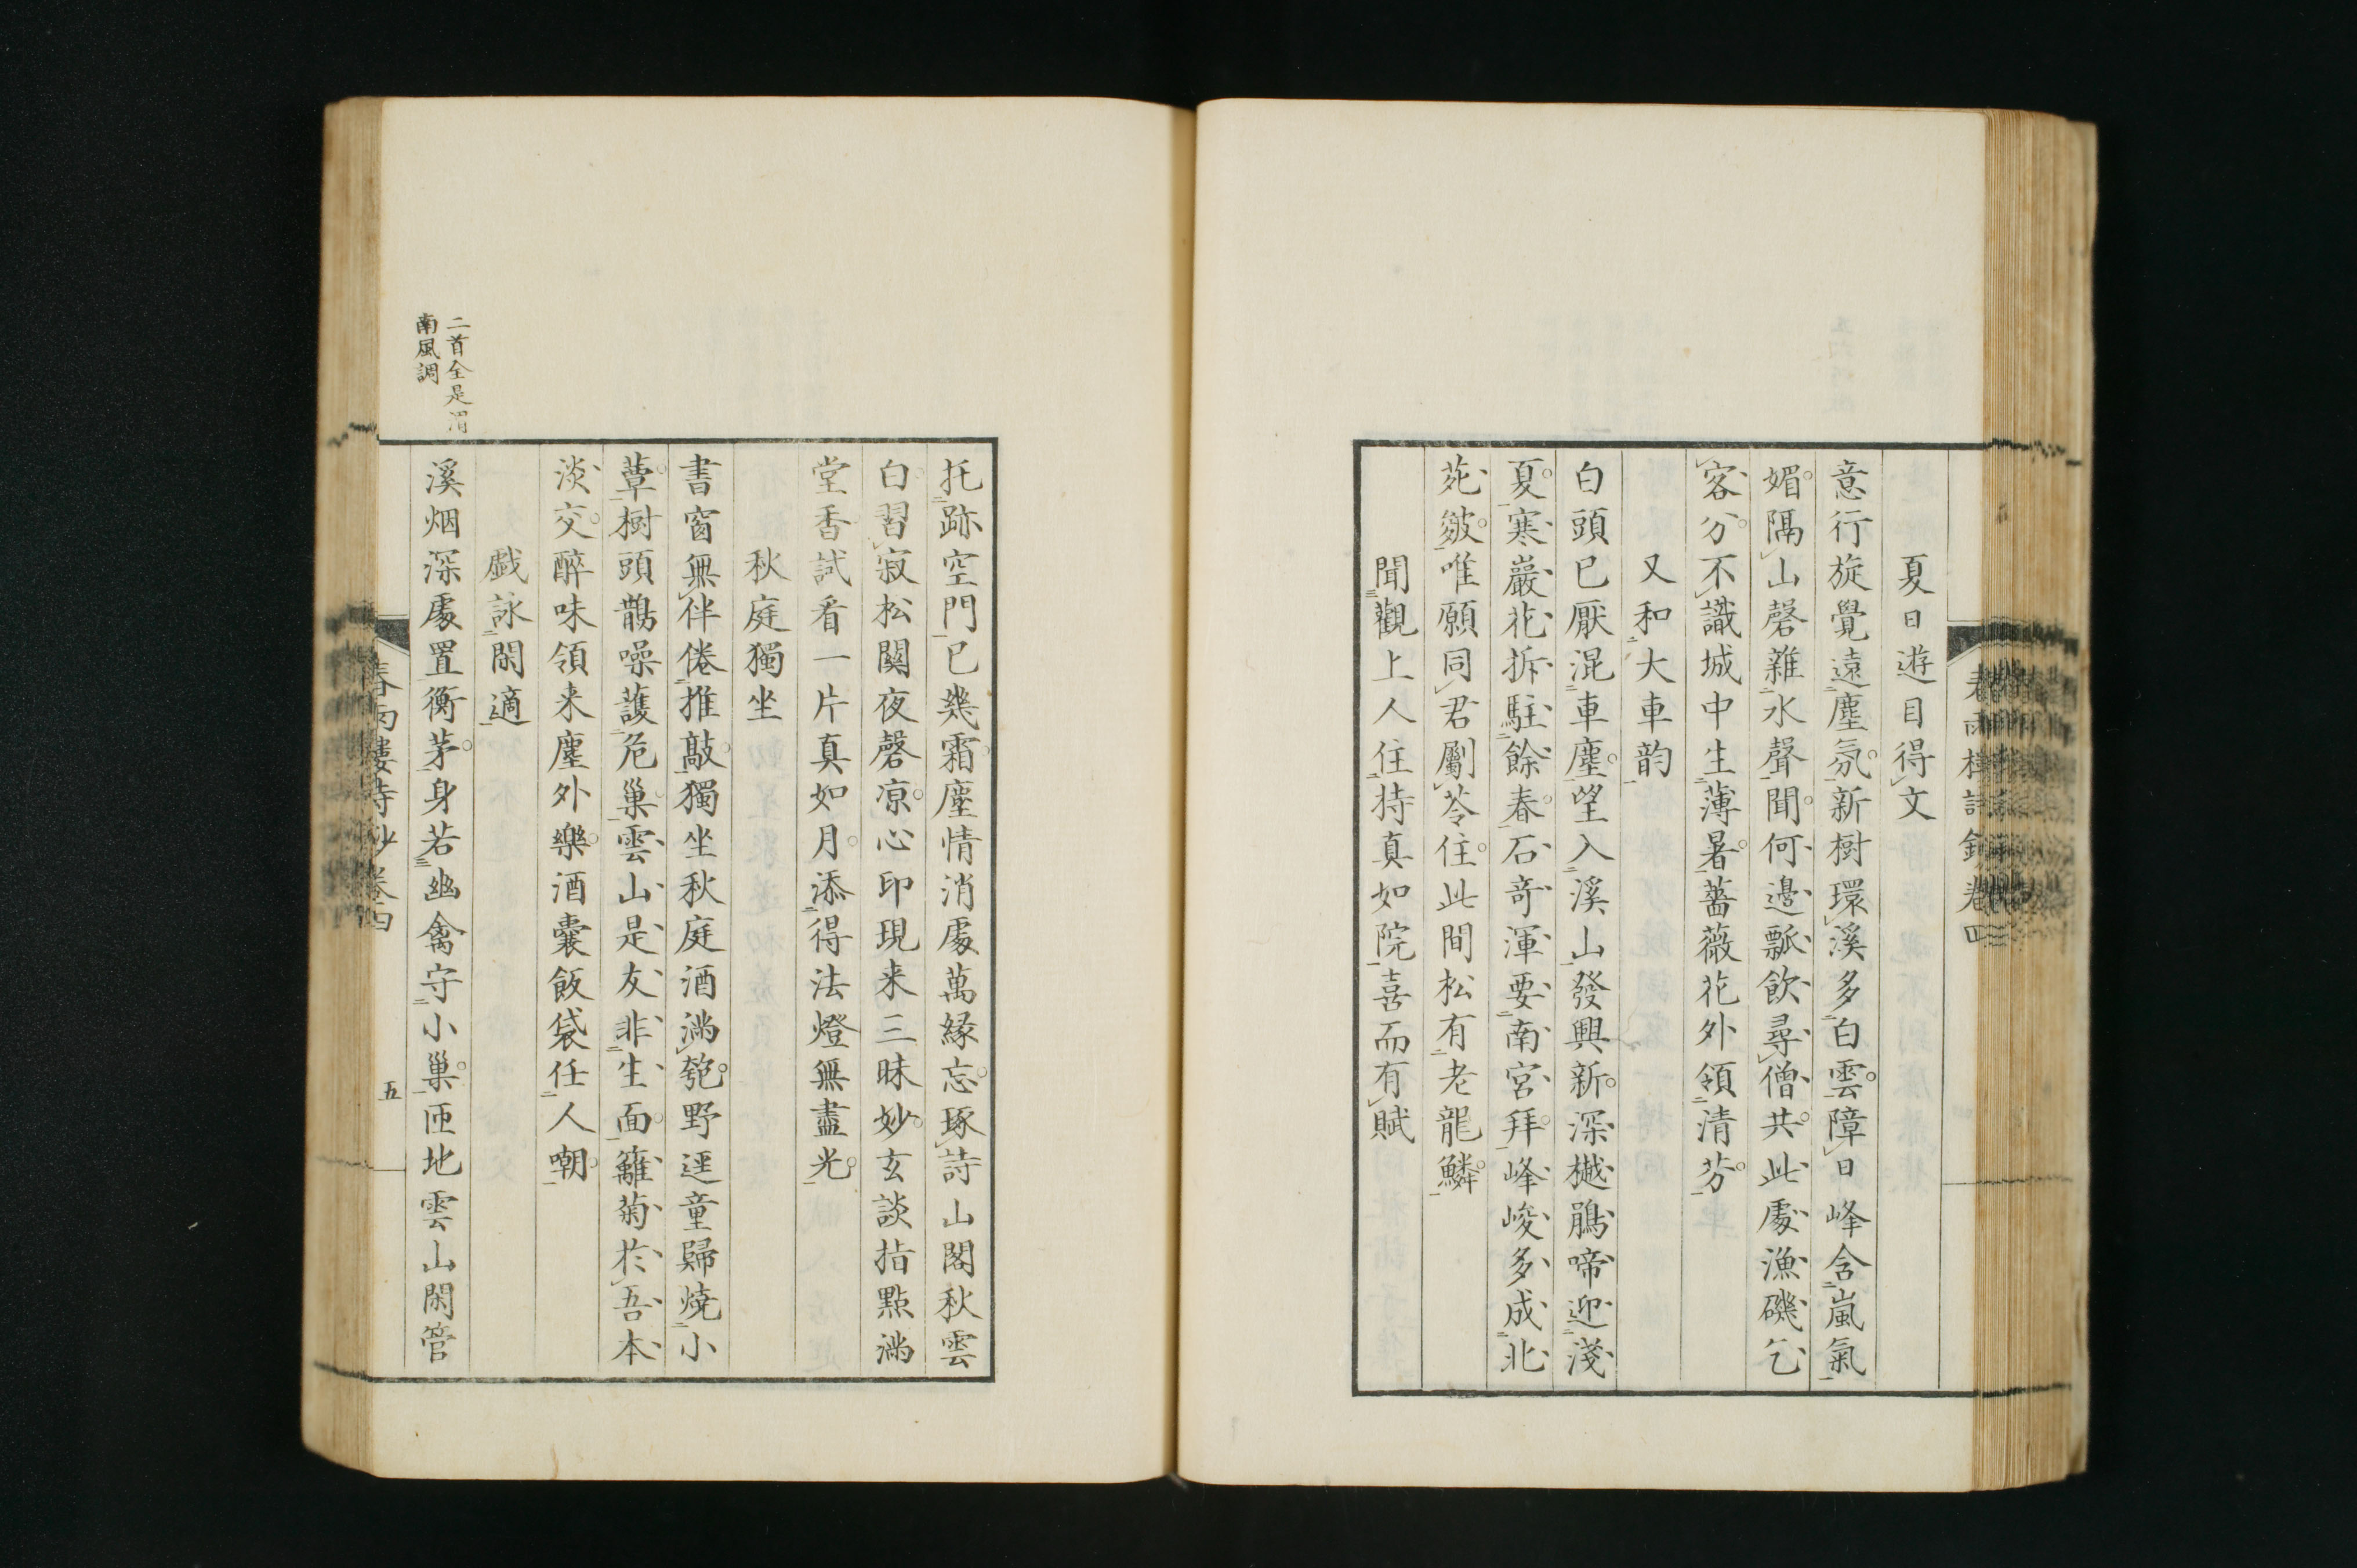 夏日遊目得文
意行旋覺遠塵氛新樹環溪多白雲障日峰含嵐氣
媚隔山磬雜水聲聞何邊瓢飲尋僧共此處漁磯乞
客分不識城中生薄暑薔薇花外領清芬
又和大車韵
白頭已厭混車塵望入溪山發興新深樾鵑啼迎淺
夏寒巖花拆駐餘春石奇渾要南宮拜峰峻多成北
苑皴唯願同君劚苓住此間松有老龍鱗
聞觀上人住持真如院喜而有賦
托跡空門已幾霜塵情消處萬緣忘琢詩山閣秋雲
白習寂松關夜磬凉心印現来三昧妙玄談指點滿
堂香試看一片真如月添得法燈無盡光
秋庭獨坐
書窗無伴倦推敲獨坐秋庭酒滿匏野逕童歸燒小
蕈樹頭鵲噪護危巢雲山是友非生面籬菊於吾本
淡交醉味領来塵外樂酒囊飯袋任人嘲
戯詠閑適
溪烟深處置衡茅身若幽禽守小巢匝地雲山閑管
二首全是渭
南風調
春雨樓詩鈔卷四
五